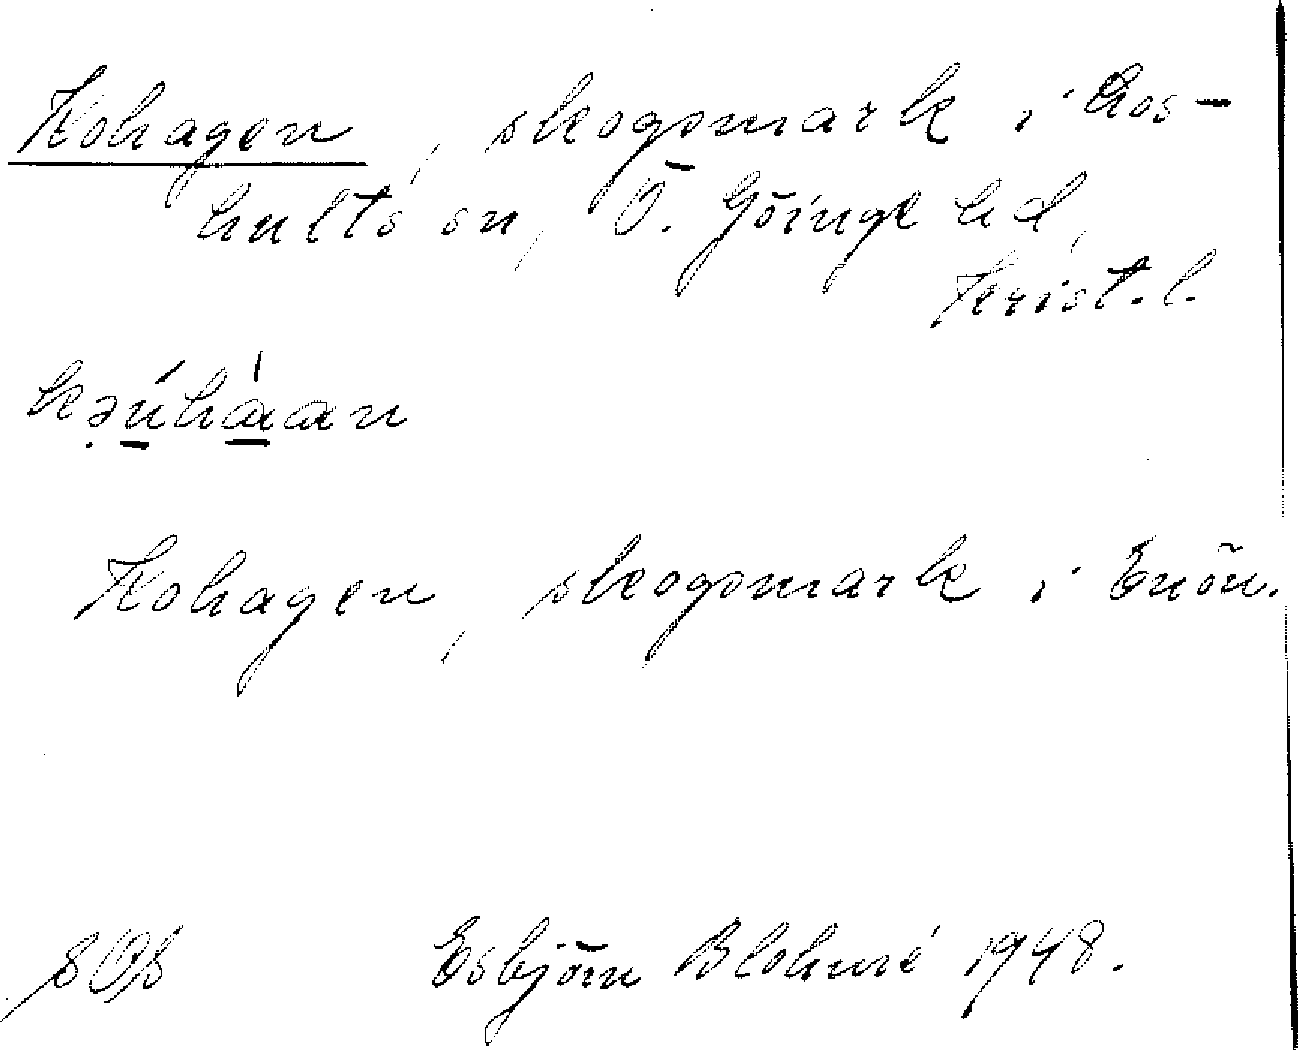 Kohagen, skogsmark i Hos-
hults sn, Ö. Göinge hd,
Krist. l.
kəúhàan
Kohagen, skogsmark i Enön.
Esbjörn Blohmé 1948.